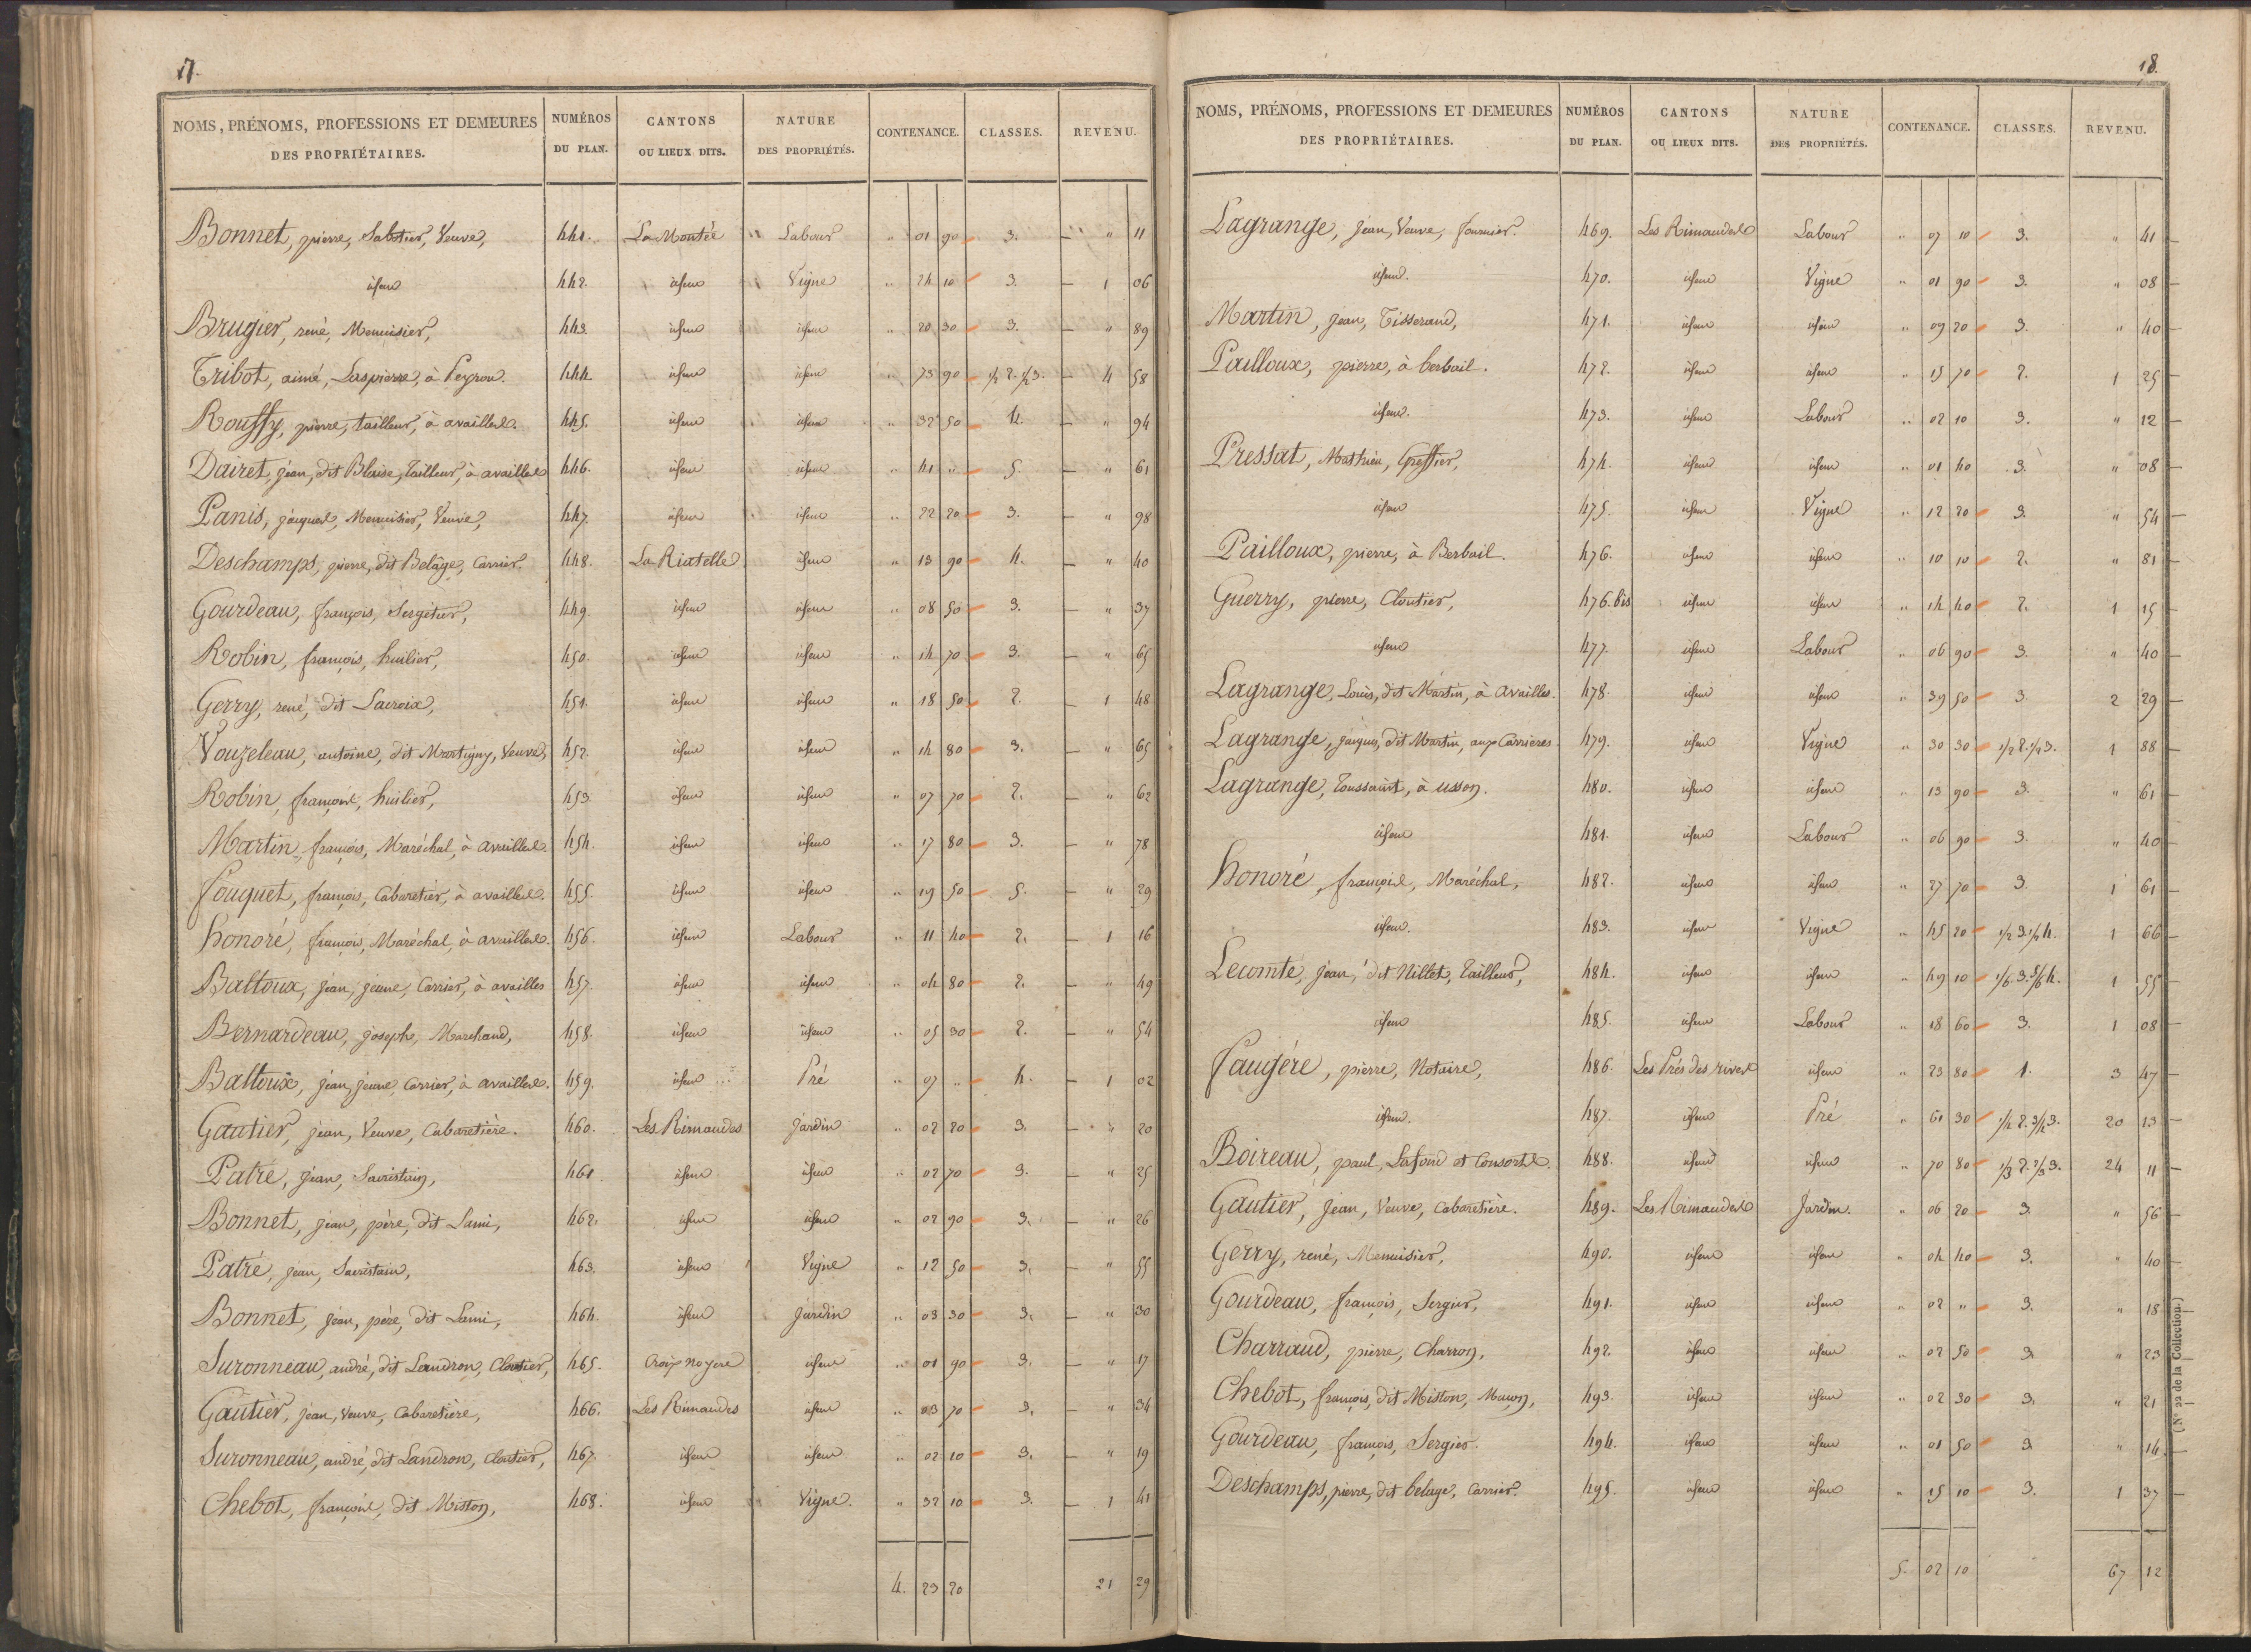 17.
NOMS, PRÉNOMS, PROFESSIONS ET DEMEURES DES PROPRIÉTAIRES. NUMÉROS DU PLAN. CANTONS OU LIEUX DITS. NATURE DES PROPRIÉTÉS. CONTENANCE. CLASSES. REVENU.
Bonnet, pierre, Sabotier, Veuve, 441. La Montée Labour " 01 90 3. " 11
idem 442. idem Vigne " 24 10 3. 1 06
Brugier, rené, Menuisier, 443. idem idem " 20 30 3. " 89
Tribot, aimé, Laspierre, à Peyrou. 444 idem idem " 73 90 1/2 2. 1/2 3. 4 58
Rouffy, pierre, tailleur, à availles. 445. idem idem " 32 50 4. " 94
Dairet, jean, dit Blaise, Tailleur, à availles 446. idem idem " 41 " 5. " 61
Panis, jacques, Menuisier, Veuve, 447. idem idem " 22 20 3. " 98
Deschamps, pierre, dit Belâge, Carrier. 448. La Riatelle idem " 13 90 4. " 40
Gourdeau, françois, Sergetier, 449. idem idem " 08 50 3. " 37
Robin, françois, huilier, 450. idem idem " 14 70 3. " 65
Gerry, rené, dit Lacroix, 451. idem idem " 18 50 2. 1 48
Vouzeleau, antoine, dit Martigny, Veuve, 452. idem idem " 14 80 3. " 65
Robin, françois, huilier, 453. idem idem " 07 70 2. " 62
Martin, françois, Maréchal, à availles. 454. idem idem " 17 80 3. " 78
Fouquet, françois, Cabaretier, à availles. 455. idem idem " 19 50 5. " 29
Honoré, françois, Maréchal, à availles. 456. idem Labour " 11 40 2. 1 16
Baltoux, jean, jeune, Carrier, à availles 457. idem idem " 04 80 2. " 49
Bernardeau, joseph, Marchand, 458. idem idem " 05 30 2. " 54
Baltoux, jean, jeune, Carrier, à availles. 459. idem Pré " 07 " 4. 1 02
Gautier, jean, Veuve, Cabaretière. 460. Les Rimaudes Jardin " 02 20 3. " 20
Patré, jean, Sacristain, 461 idem idem " 02 70 3. " 25
Bonnet, jean, père, dit Lami, 462. idem idem " 02 90 3. " 26
Patré, jean, Sacristain, 463. idem Vigne " 12 50 3. " 55
Bonnet, jean, père, dit Lami, 464. idem Jardin " 03 30 3. " 30
Suronneau, andré, dit Landron, Cloutier, 465. Croix noyere idem " 01 90 3. " 17
Gautier, jean, Veuve, Cabaretière, 466. Les Rimaudes idem " 03 70 3. " 34
Suronneau, andré, dit Landron, Cloutier, 467. idem idem " 02 10 3. " 19
Chebot, françois, dit Miston, 468. idem Vigne. " 32 10 3. 1 41
4. 23 20 21 29
18.
NOMS, PRÉNOMS, PROFESSIONS ET DEMEURES DES PROPRIÉTAIRES. NUMÉROS DU PLAN. CANTONS OU LIEUX DITS. NATURE DES PROPRIÉTÉS. CONTENANCE. CLASSES. REVENU.
Lagrange, jean, Veuve, fournier. 469. Les Rimaudes Labour " 07 10 3. " 41
idem. 470. idem Vigne " 01 90 3. " 08
Martin, jean, Tisserand, 471. idem idem " 09 20 3. " 40
Pailloux, pierre, à berbail. 472. idem idem " 15 70 2. 1 25
idem. 473. idem Labour " 02 10 3. " 12
Pressat, Mathieu, Greffier, 474. idem idem " 01 40 3. " 08
idem 475. idem Vigne " 12 20 3. " 54
Pailloux, pierre, à Berbail. 476. idem idem " 10 10 2. " 81
Guerry, pierre, Cloutier, 476.bis idem idem " 14 40 2. 1 15
idem 477. idem Labour " 06 90 3. " 40
Lagrange, Louis, dit Martin, à availles. 478. idem idem " 39 50 3. 2 29
Lagrange, jacques, dit Martin, aux Carrières. 479. idem Vigne " 30 30 1/2 2. 1/2 3. 1 88
Lagrange, Toussaint, à usson. 480. idem idem " 13 90 3. " 61
idem 481. idem Labour " 06 90 3. " 40
Honoré, françois, Maréchal, 482. idem idem " 27 70 3. 1 61
idem. 483. idem Vigne " 45 20 1/2 3. 1/2 4. 1 66
Lecomte, jean, dit Nillet, Tailleur, 484. idem idem " 49 10 1/6. 3. 5/6 4. 1 55
idem 485. idem Labour " 18 60 3. 1 08
Faugère, pierre, Notaire, 486. Les Prés des rives idem " 23 80 1. 3 47
idem. 487. idem Pré " 61 30 1/4 2. 3/4 3. 20 13
Boireau, paul, Lafond et Consorts. 488. idem idem " 70 80 1/3 2. 2/3 3. 24 11
Gautier, jean, Veuve, Cabaretière. 489. Les Rimaudes Jardin. " 06 20 3. " 56
Gerry, rené, Menuisier, 490. idem idem " 04 40 3. " 40
Gourdeau, françois, Sergier, 491. idem idem " 02 " 3. " 18
Charraud, pierre, Charron, 492. idem idem " 02 50 3 " 23
Chebot, françois, dit Miston, Maçon, 493. idem idem " 02 30 3. " 21
Gourdeau, françois, Sergier. 494. idem idem " 01 50 3 " 14
Deschamps, pierre, dit belage, Carrier. 495. idem idem " 15 10 3. 1 37
5. 02 10 67 12
(N° 22 de la Collection.)